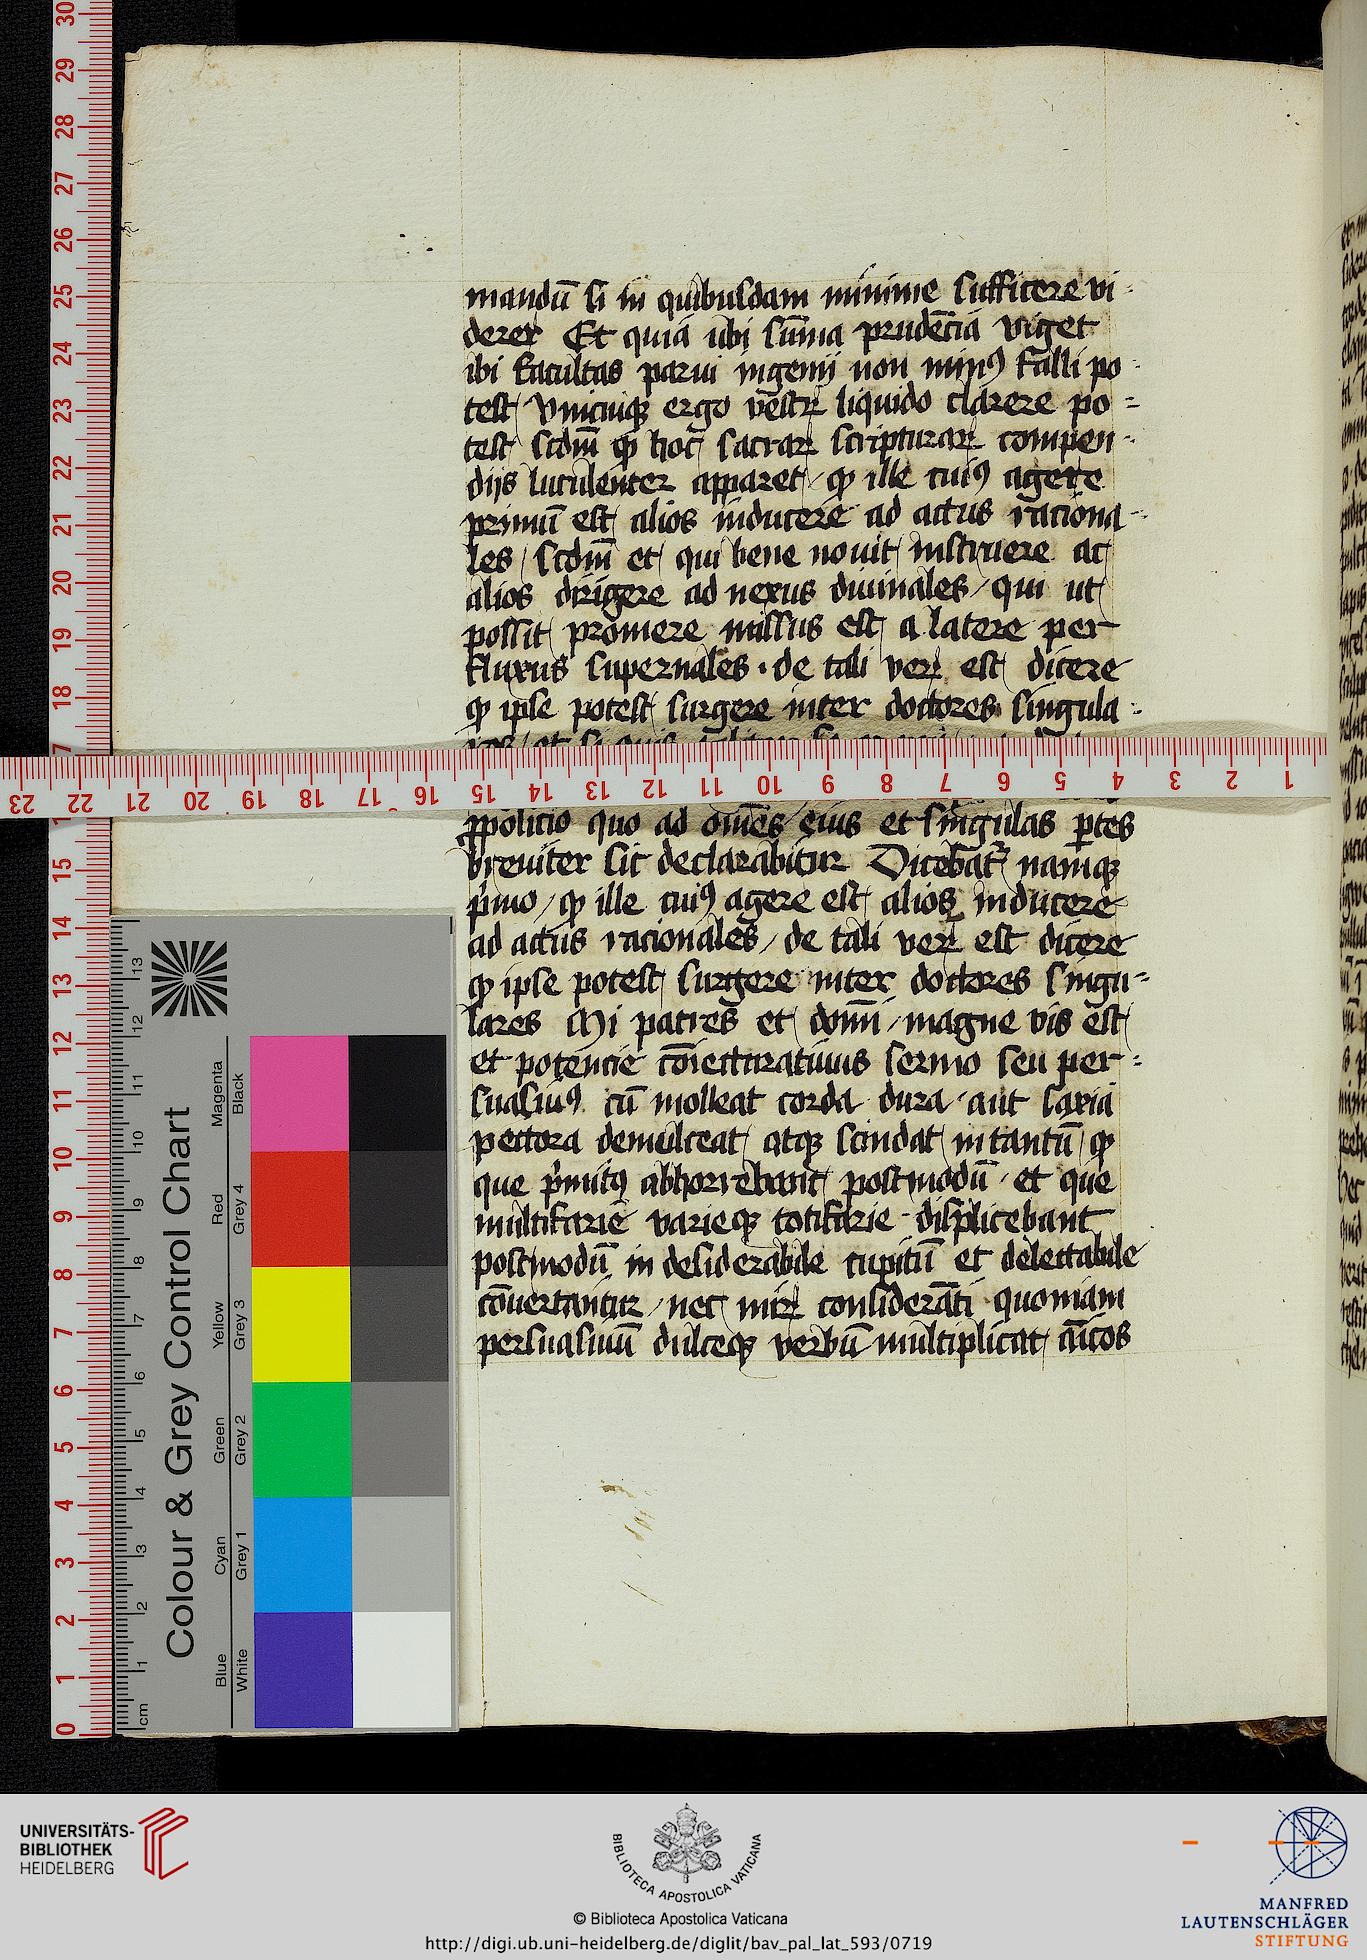 mandū si in quibusdam minime sufficere vi-
derer Et quia ubi sūma prudēcia viget
ibi facultas parui ingenij non minꝰ falli po-
test Vnicuiqꝫ ergo vestꝝ liquido clarere po-
test scdm̄ qꝫ hoc sacraꝝ scripturaꝝ compen-
dijs luculenter apparet / ꝙ ille cuiꝰ agere
primū est alios inducere ad actus raciona-
les / scdm̄ et qui bene nouit instruere ac
alios dirigere ad nexus diuinales / qui ut
possit promere missus est a latere per
fluxus supernales · de tali veꝝ est dicere
ꝙ ipse potest surgere inter doctores singula-
ꝓposicio quo ad om̄es eius et singulas ꝑtes
breuiter sic declarabitur Dicebat᷑ namqꝫ
p̄mo / ꝙ ille cuiꝰ agere est alios inducere
ad actus racionales / de tali veꝝ est dicere
ꝙ ipse potest surgere inter doctores singu-
lares Mi patres et domī / magne vis est
et potencie cōiecturatiuus sermo seu per-
suasiuꝰ cū molleat corda dura aut saxia
pectora demulceat atqꝫ scindat in tantū ꝙ
que p̄mitꝰ abhorrebant postmodū / et que
multifarie varieqꝫ totifarie displicebant
postmodū in desiderabile cupitū et delectabile
cōuertantur / nec miꝝ considerāti quoniam
persuasiuū dulceqꝫ verbū multiplicat amīcos
30
29
28
27
26
25
24
23
22
21
20
19
18
15
14
13
12
11
10
9
8
7
6
5
4
3
2
1
0
23 22 21 20 19 18 17 16 15 14 13 12 11 10 9 8 7 6 5 4 3 2 1
Colour & Grey Control Chart
Magenta Black
Red Grey 4
Yellow Grey 3
Green Grey 2
Cyan Grey 1
Blue White
13
12
11
10
9
8
7
6
5
4
3
2
1
cm
UNIVERSITÄTS-
BIBLIOTHEK
HEIDELBERG
BIBLIOTECA APOSTOLICA VATICANA
© Biblioteca Apostolica Vaticana
http://digi.ub.uni-heidelberg.de/diglit/bav_pal_lat_593/0719
MANFRED
LAUTENSCHLÄGER
STIFTUNG